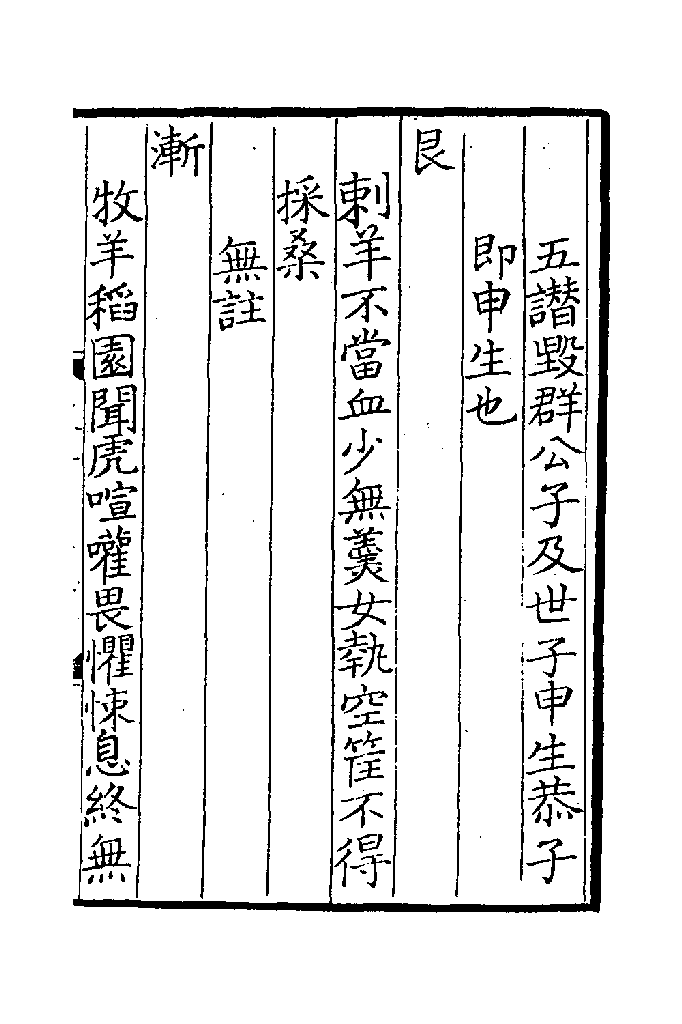 五譖毀群公子及世子申生恭子
即申生也
艮
刺羊不當血少無羹女執空筐不得
採桑
無註
漸
牧羊稻園聞虎喧嚾畏懼悚息終無